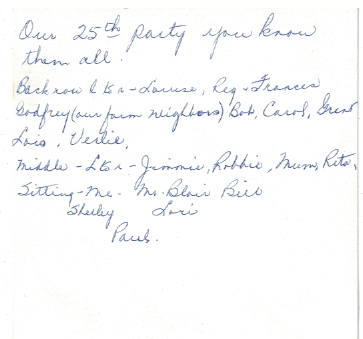 Our 25th party you know
them all.
Back row L to r - Louise, Reg - Frances
Godfrey (our farm neighbors) Bob, Carol,
Lois, Verlie,
Middle - L to r - Jimmie, Robbie, Mum, Rita,
Sitting - Me - Mr. Blair Bill
Shelley Lori
Paul.